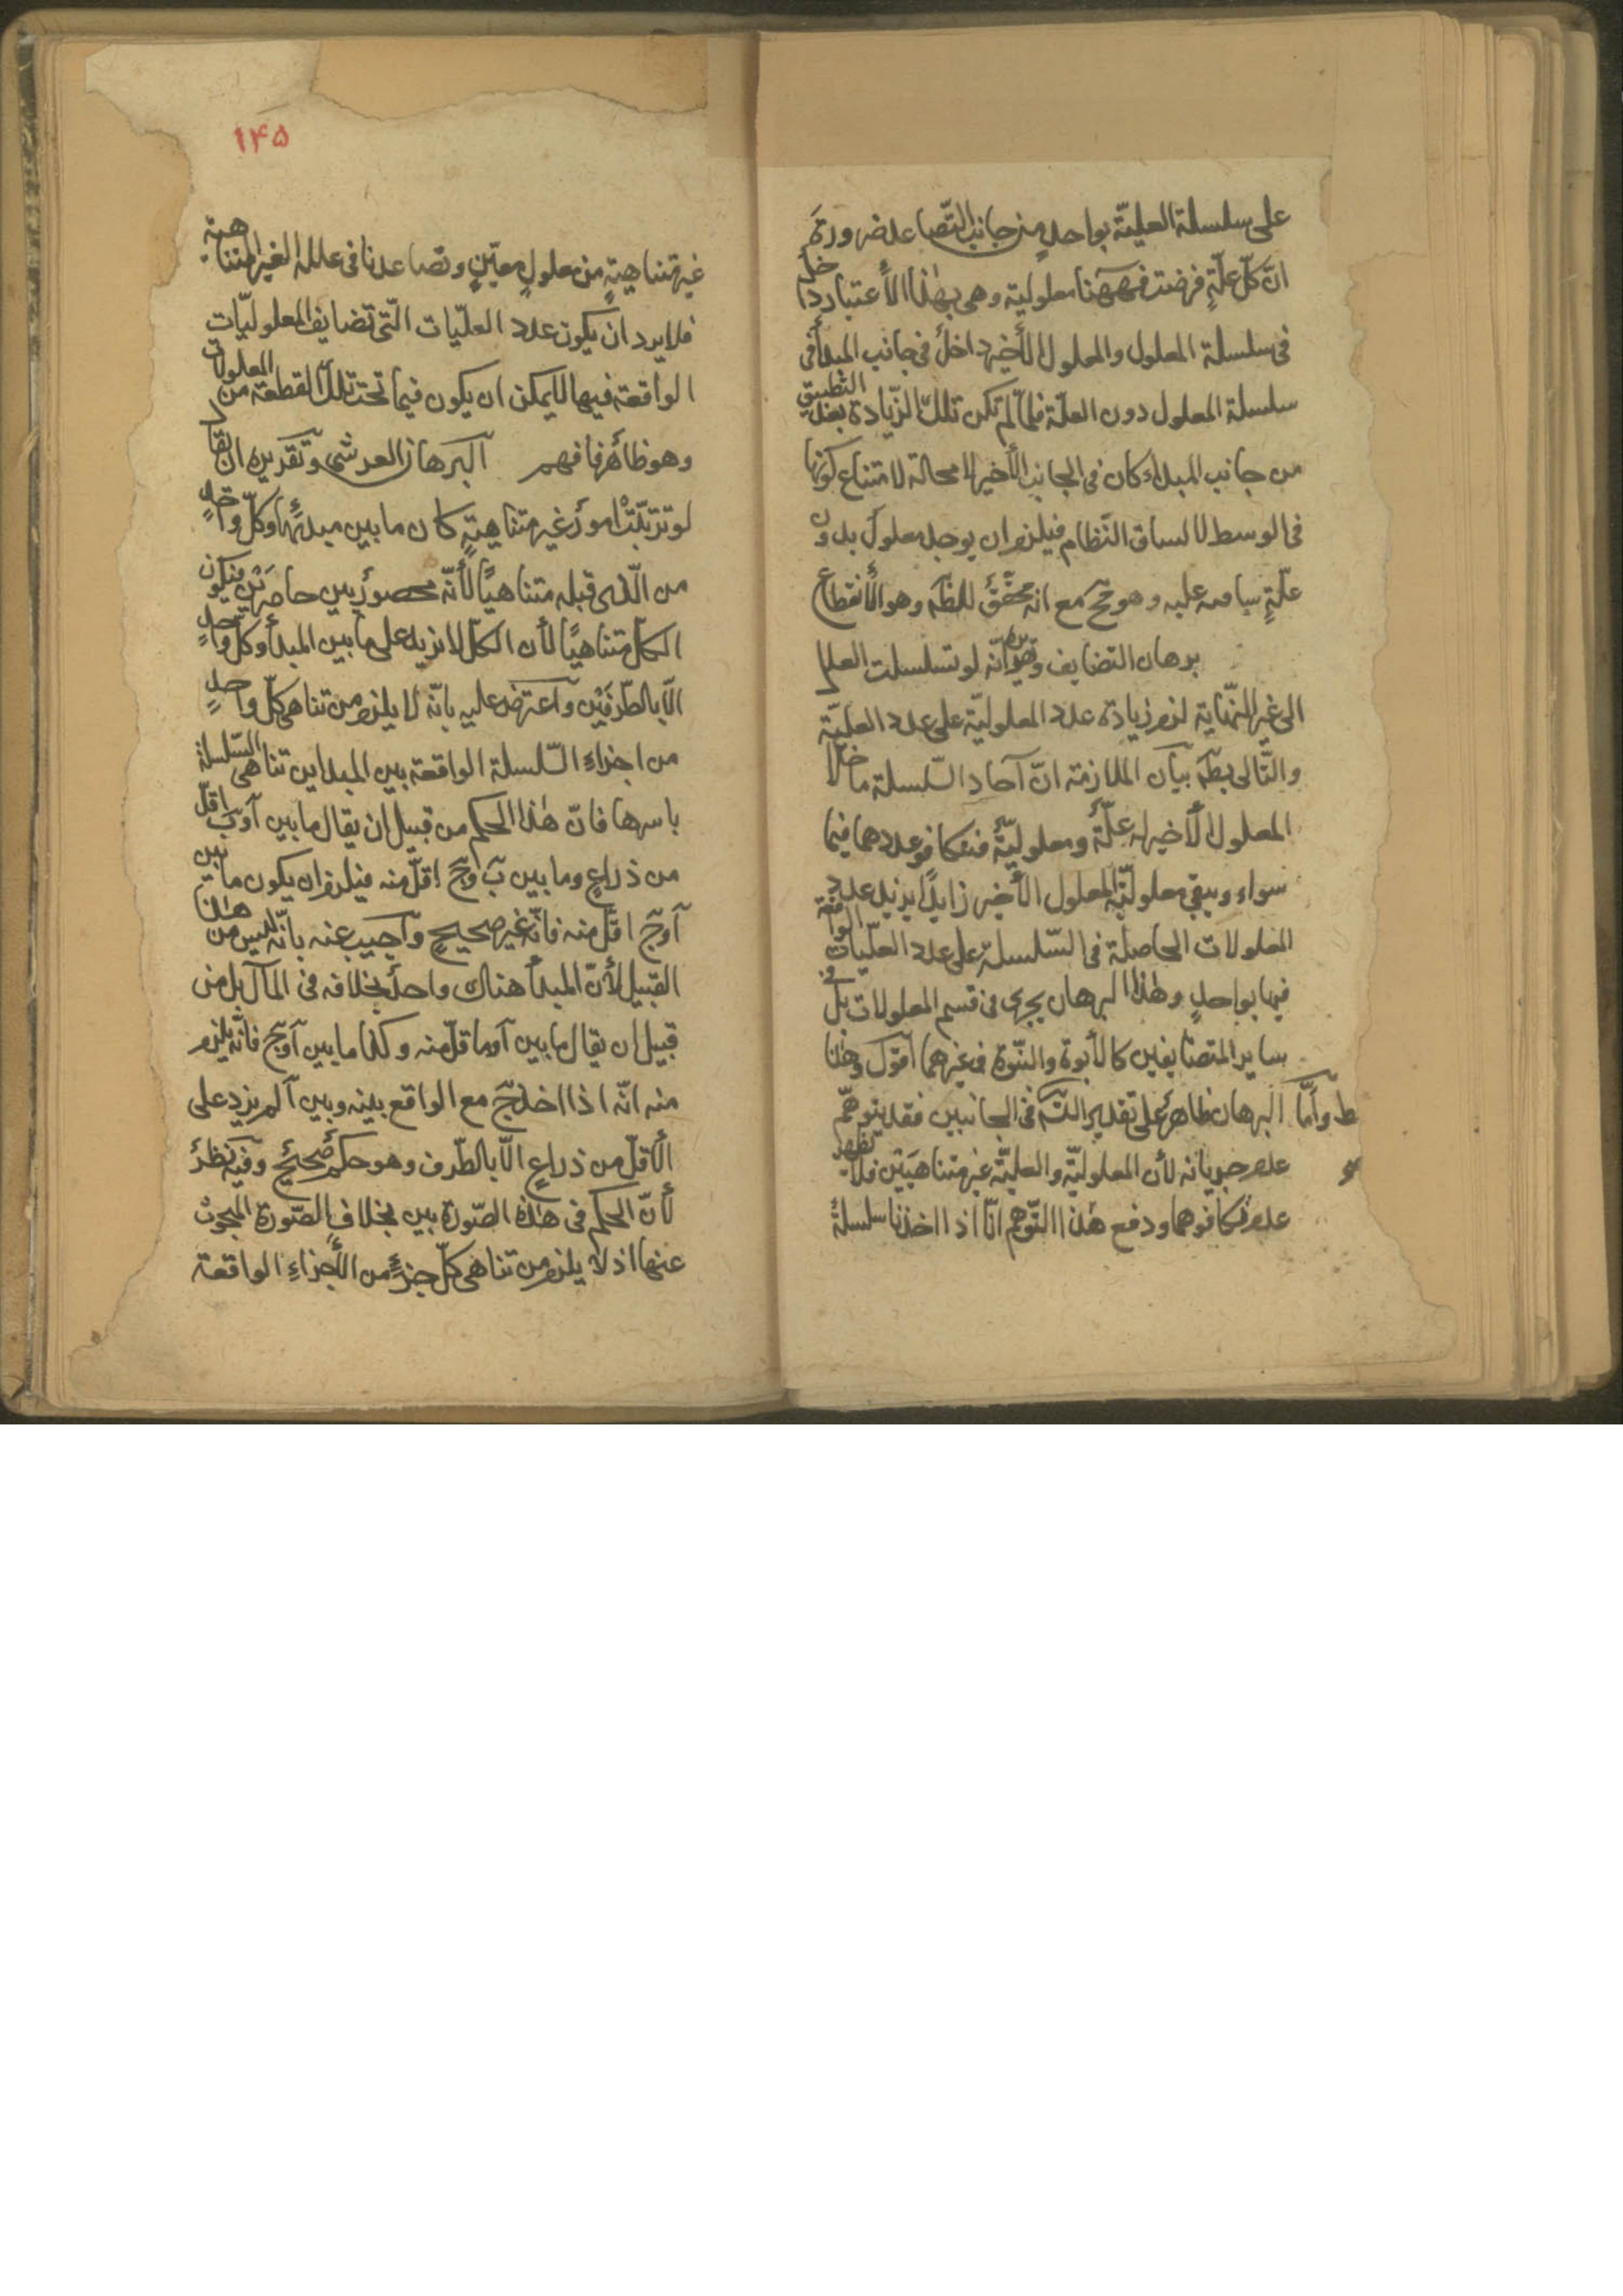 على سلسلة العليّة بواحدٍ من جانب التّصاعد ضرورةَ
انّ كلّ علّةٍ فرضت فههنا معلولية وهى بهٰذا الأعتبار داخل
فى سلسلة المعلول والمعلول الأخير داخلٌ فى جانب المبدأ فى
سلسلة المعلول دون العلّة فلمّا لم تكن تلك الزّيادة بعد التّطبيق
من جانب المبدأ كان فى الجانب الأخير لا محالة لامتناع كونها
فى الوسط لاتساق النّظام فيلزم ان يوجد معلولٌ بدون
علّةٍ سابقه عليه وهو مح مع انه محقّقٌ للمط وهو الأنقطاع
برهان التضايف وتقريره انّه لو تسلسلت العلل
الى غير النّهاية لزم زيادة عدد المعلوليّة على عدد العليّة
والتّالى بط بيان الملازمة انّ آحاد السّلسلة ما خلا
المعلول الأخير له علّيّة ومعلوليّةٌ فتكافو عددهما فيما
سواه وبيقى معلوليّة المعلول الأخير زايدًا يزيد عدد
المعلولات الحاصلة فى السّلسلة على عدد العلّيات الواقعة
فيها بواحدٍ وهٰذا البرهان يجرى فى قسم المعلولات بل وفى
ساير المتضايفين كالأبوة والبنّوة فى غيرهما اقول وهٰذا
البرهان ظاهرٌ على تقدير التسه فى الجانبين فقد يتوهّم ط وأمّا
عدم جريانه لأن المعلوليّة والعليّة غير متناهيَتين فلا يظهر
عدم تكافوهما ودفع هٰذا التّوهم انّا اذا اخذنا سلسلةً
١٤٥
غير متناهيةٍ من معلولٍ معيّنٍ وتصاعدنا فى علله الغير المتناهية
فلا يرد ان يكون عدد العلّيات التّى تضايف المعلوليّات
الواقعة فيها لا يمكن ان يكون فيما تحت تلك القطعة من المعلولات
وهو ظاهرٌ فافهم البرهان العرشى وتقديره ان يقال
لو ترتّبتْ امورٌ غير متناهيةٍ كان ما بين مبدئها وكلّ واحدٍ
من الّذى قبله متناهيًا لأنّه محصورٌ بين حاصرَيْن فيكون
الكلّ متناهيًا لأن الكلّ لا يزيد على ما بين المبدأ وكلّ واحدٍ
الّا بالطّرفَيْن واعترض عليه بانّه لا يلزم من تناهى كلّ واحدٍ
من اجزاء السّلسلة الواقعة بين المبداين تناهى السّلسلة
باسرها فانّ هٰذا الحكم من قبيل ان يقال ما بين آ وب اقلّ
من ذراعٍ وما بين ب وج اقلّ منه فيلزم ان يكون ما بين
آ وج اقلّ منه فانّه غير صحيحٍ واجيب عنه بانّه ليس من هٰذا
القبيل لأنّ المبدأ هناك واحدٌ بخلافه فى المآل بل من
قبيل ان يقال ما بين آ وما قلّ منه وكذا ما بين آ وج فانّه يلزم
منه انّه اذا اخذ ج مع الواقع بينه وبين آ لم يزيد على
الأقلّ من ذراعٍ الّا بالطّرف وهو حكمٌ صحيحٌ وفيه نظرٌ
لأنّ الحكم فى هٰذه الصّورة بين بخلاف الصّورة المبحوث
عنها اذ لا يلزم من تناهى كلّ جزءٍ من الأجزاء الواقعة